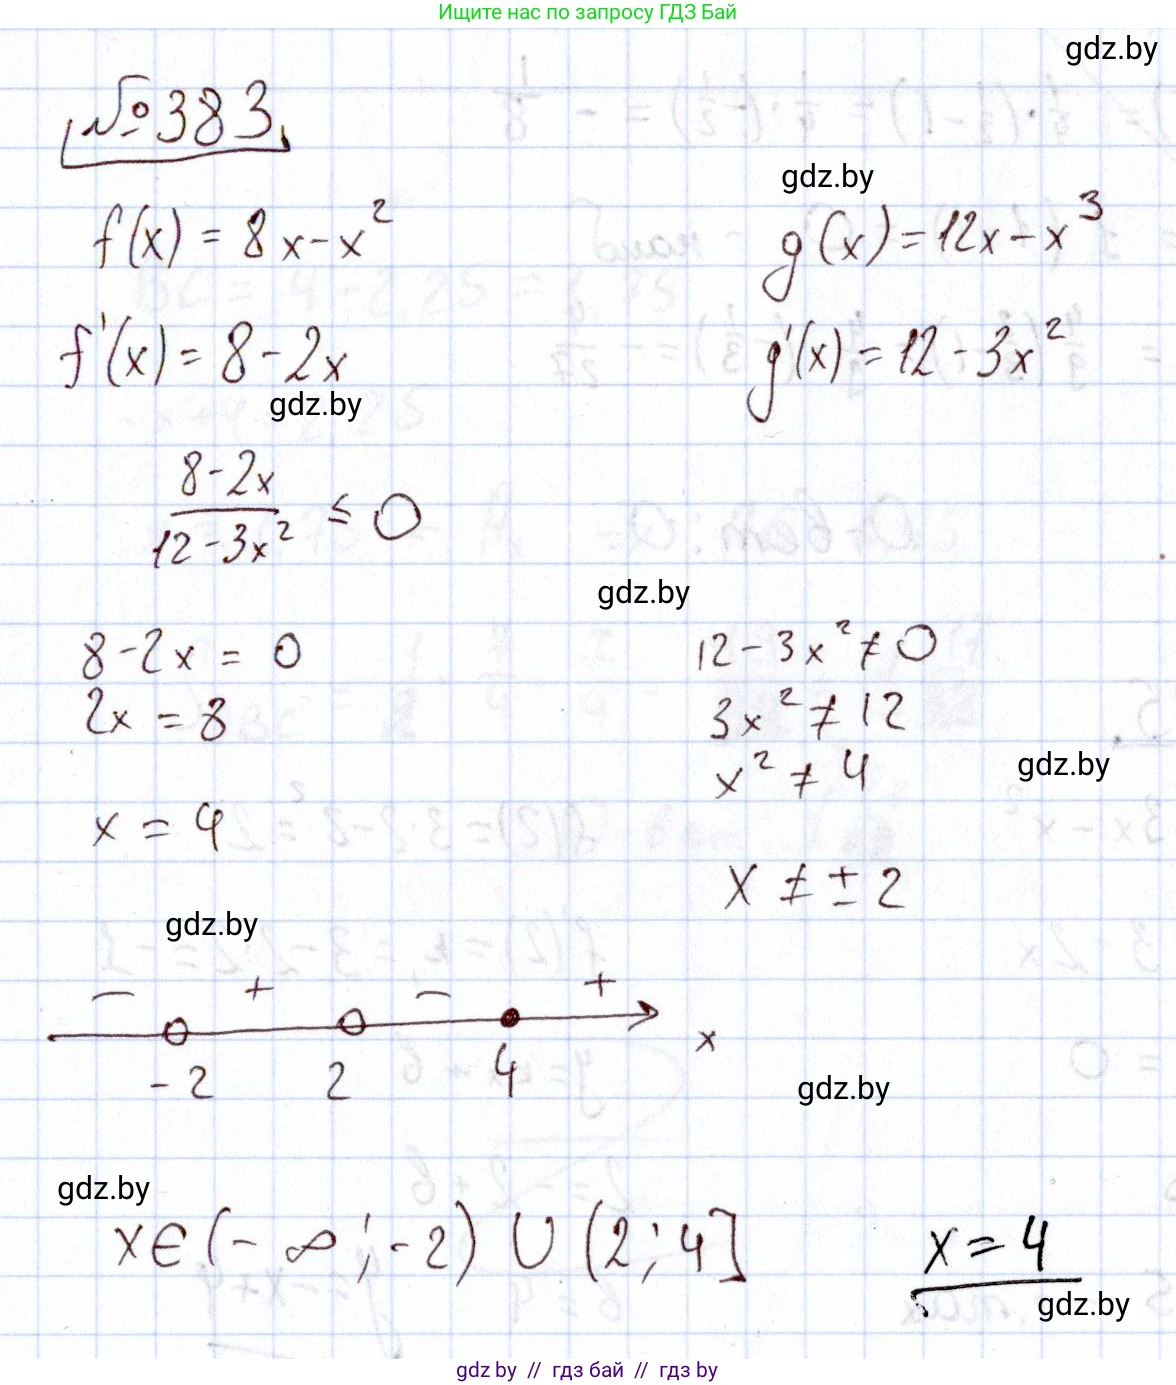 Ищите нас по запросу ГДЗ Бай
gdz.by
№383
gdz.by
f(x) = 8x - x²
g(x) = 12x - x³
f'(x) = 8 - 2x
g'(x) = 12 - 3x²
gdz.by
8 - 2x
12 - 3x² ≤ 0
gdz.by
8 - 2x = 0
12 - 3x² ≠ 0
2x = 8
3x² ≠ 12
gdz.by
x² ≠ 4
x = 4
x ≠ ± 2
gdz.by
− + − +
-2 2 4 x
gdz.by
gdz.by
x ∈ (-∞; -2) ∪ (2; 4]
x = 4
gdz.by
gdz by // гдз бай // гдз by